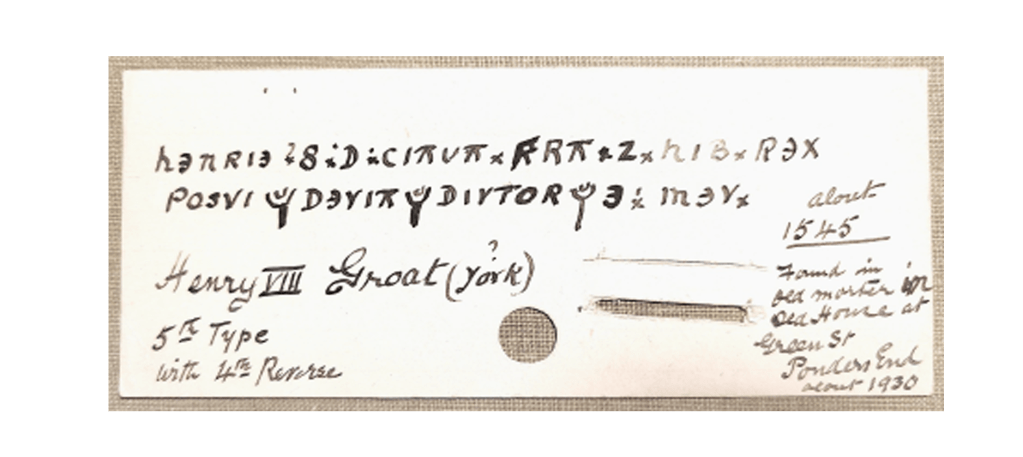 hƎnRIƎ 8 : D : CIΛVΛ × FRΛ × Z × hIB × RƎX
POSVI DƎVIΛ DIVTOR Ǝ : mƎV ×
Henry VIII Groat (York) ?
5th Type
with 4th Reverse
about
1545
Found in
old mortar in
old House at
Green St
Ponders End
about 1930